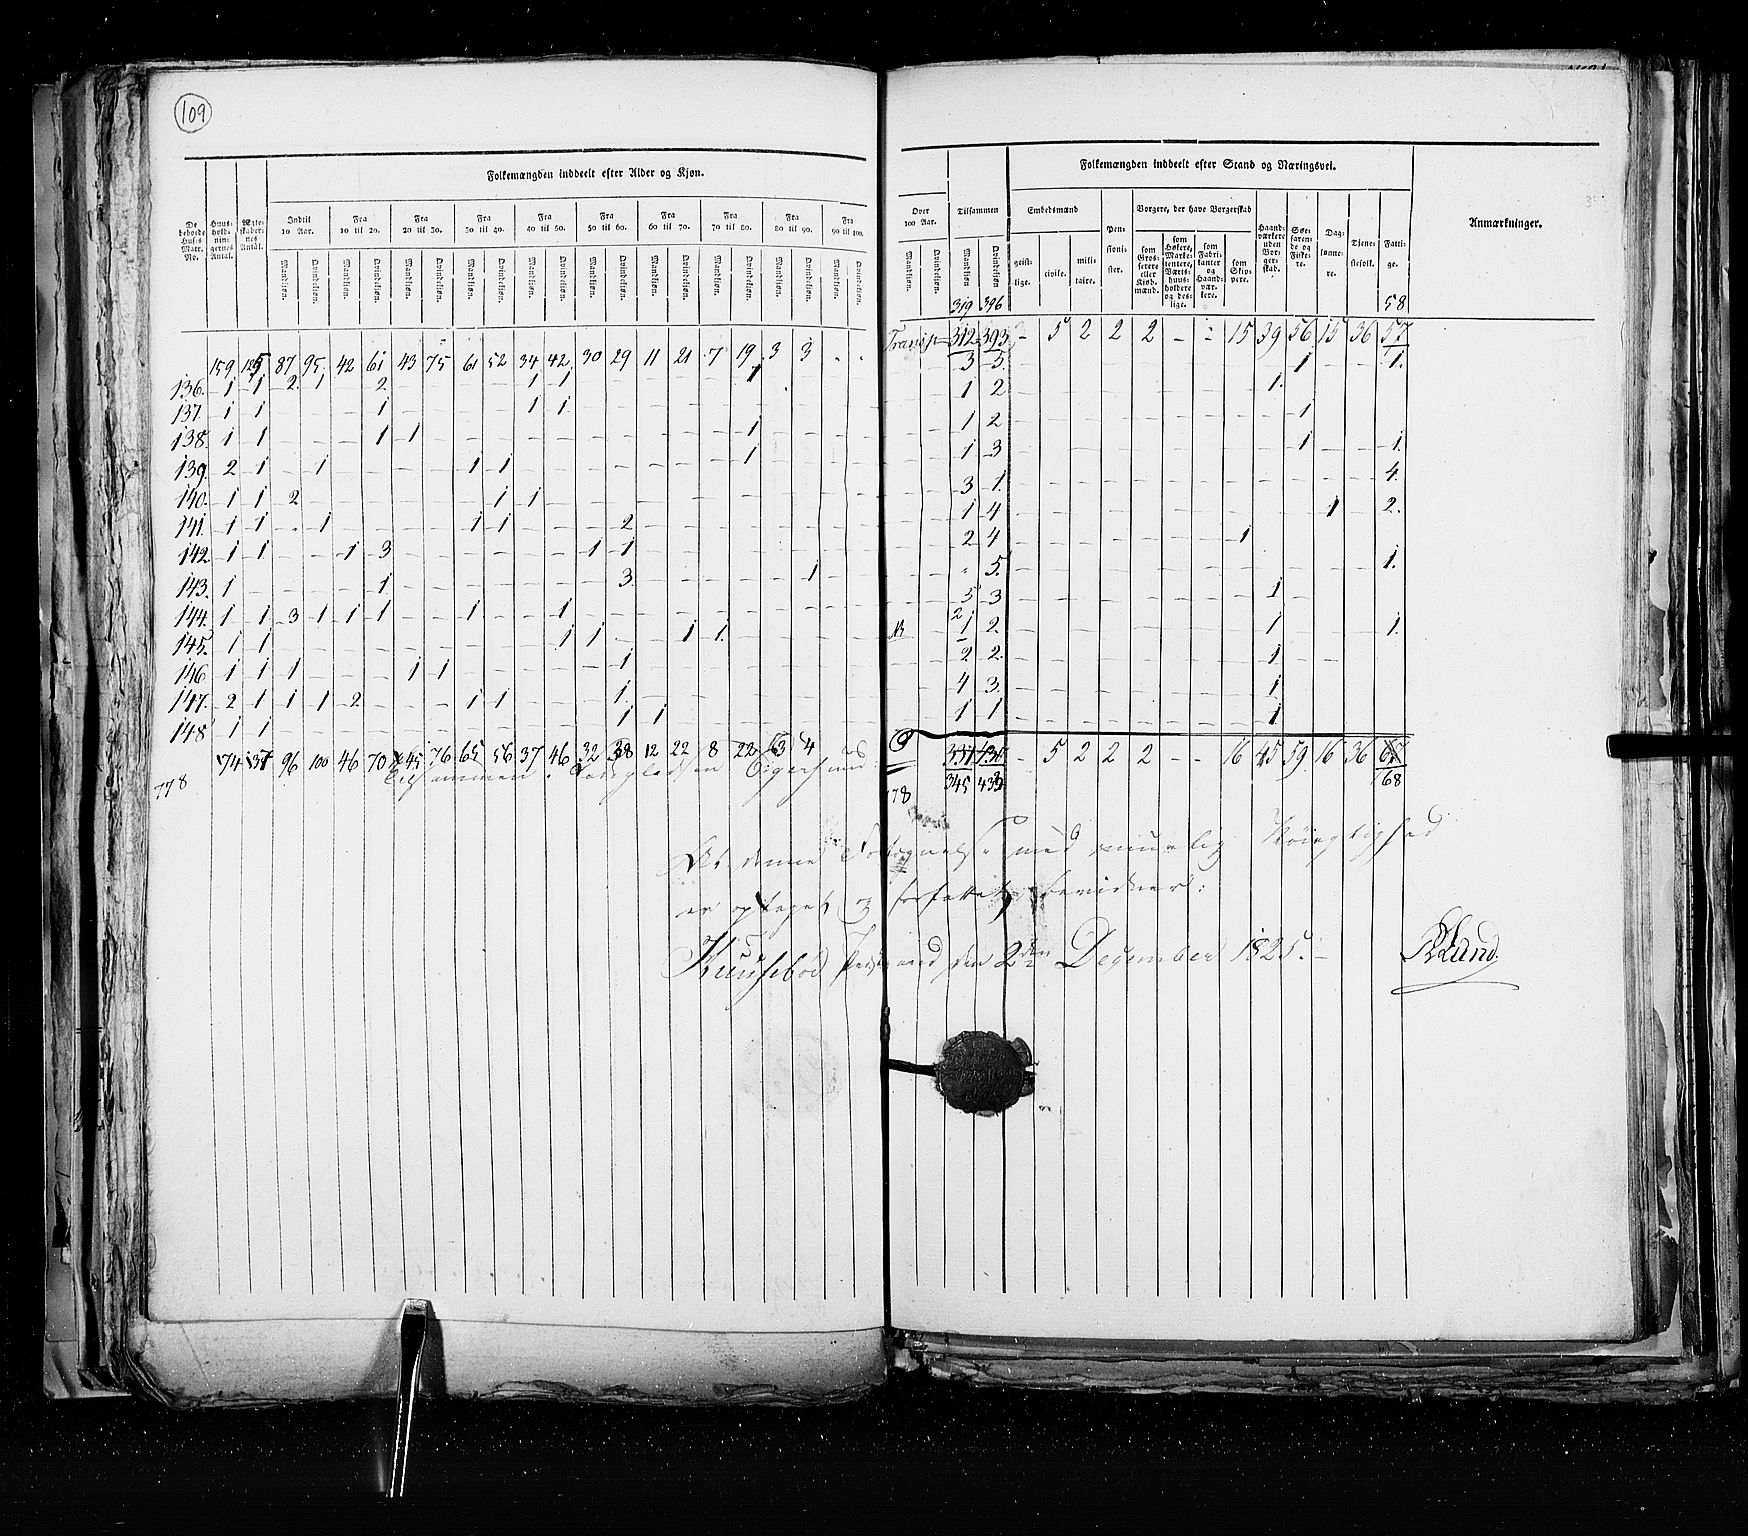 109
Folkemængden inddeelt efter Alder og Kjøn.
De beboede Huses Matr. No. | Huusholdningernes Antal. | Ægteskabernes Antal. | Indtil 10 Aar. | Fra 10 til 20. | Fra 20 til 30. | Fra 30 til 40. | Fra 40 til 50. | Fra 50 til 60. | Fra 60 til 70. | Fra 70 til 80. | Fra 80 til 90. | Fra 90 til 100.
Mandkjøn. Qvindekjøn. Mandkjøn. Qvindekjøn. Mandkjøn. Qvindekjøn. Mandkjøn. Qvindekjøn. Mandkjøn. Qvindekjøn. Mandkjøn. Qvindekjøn. Mandkjøn. Qvindekjøn. Mandkjøn. Qvindekjøn. Mandkjøn. Qvindekjøn. Mandkjøn. Qvindekjøn.
159 125 87 95 42 61 43 75 61 52 34 42 30 29 11 21 7 19 3 3 - -
136. 1 1 2 1 - 2 - - - - 1 1 - - - - - 1
137. 1 1 - - - 1 - - - - 1 1 - - - - - -
138. 1 1 - - - 1 1 - - - - - - - - - - 1
139. 2 1 - 1 - - - - 1 1 - - - - - - - 1
140. 1 1 2 - - - - - - 1 1 - - - - - - -
141. 1 1 - 1 - - - - 1 1 - - - 2 - - - -
142. 1 1 - - 1 3 - - - - - - 1 1 - - - -
143. 1 - - - - 1 - - - - - - - 3 - - - - - 1
144. 1 1 3 1 1 1 - - 1 - - 1 - - - - - -
145. 1 1 - - - - - - - - - 1 1 - - 1 1 -
146 1 1 1 - - - 1 1 - - - - - 1 - - - -
147. 2 1 1 1 2 - - - 1 1 - - - 1 - - - -
148 1 1 - - - - - - - - - - - 1 1 - - -
174 137 96 100 46 70 45 76 65 56 37 46 32 38 12 22 8 22 3 4
778
Tilsammen Ladepladsen Eigersund
Folkemængden inddeelt efter Stand og Næringsvei.
Over 100 Aar. | Tilsammen | Embedsmænd | Pensionister. | Borgere, der have Borgerskab | Haandværkere uden Borgerskab. | Søefarende og Fiskere. | Daglønnere. | Tjenestefolk. | Fattige. | Anmærkninger.
Mandkjøn. Qvindekjøn. Mandkjøn. Qvindekjøn. geistlige. civile. militaire. som Grosserere eller Kjøbmænd. som Høkere, Markentere, Værtshuusholdere og deslige. som Fabrikanter og Haandværkere. som Skippere.
319 396 58
Transp. 312 393 - 5 2 2 2 - - 15 39 56 15 36 57
3 5 1 1.
1 2 1.
1 2 1
1 3 1 1.
3 1. 4.
1 4 1 2.
2 4 1
- 5. 1.
5 3 1
2 1 2. 1 1.
2 2. 1
4 3. 1
1 1 1
337 430 - 5 2 2 2 - - 16 45 59 16 36 67
345 433 68
778
At denne Fortegnelse med muelig Nøiagtighed
er optaget og forfattet bevidner:
Huusebøe Præstegaard den 2den December 1825.
Lund.